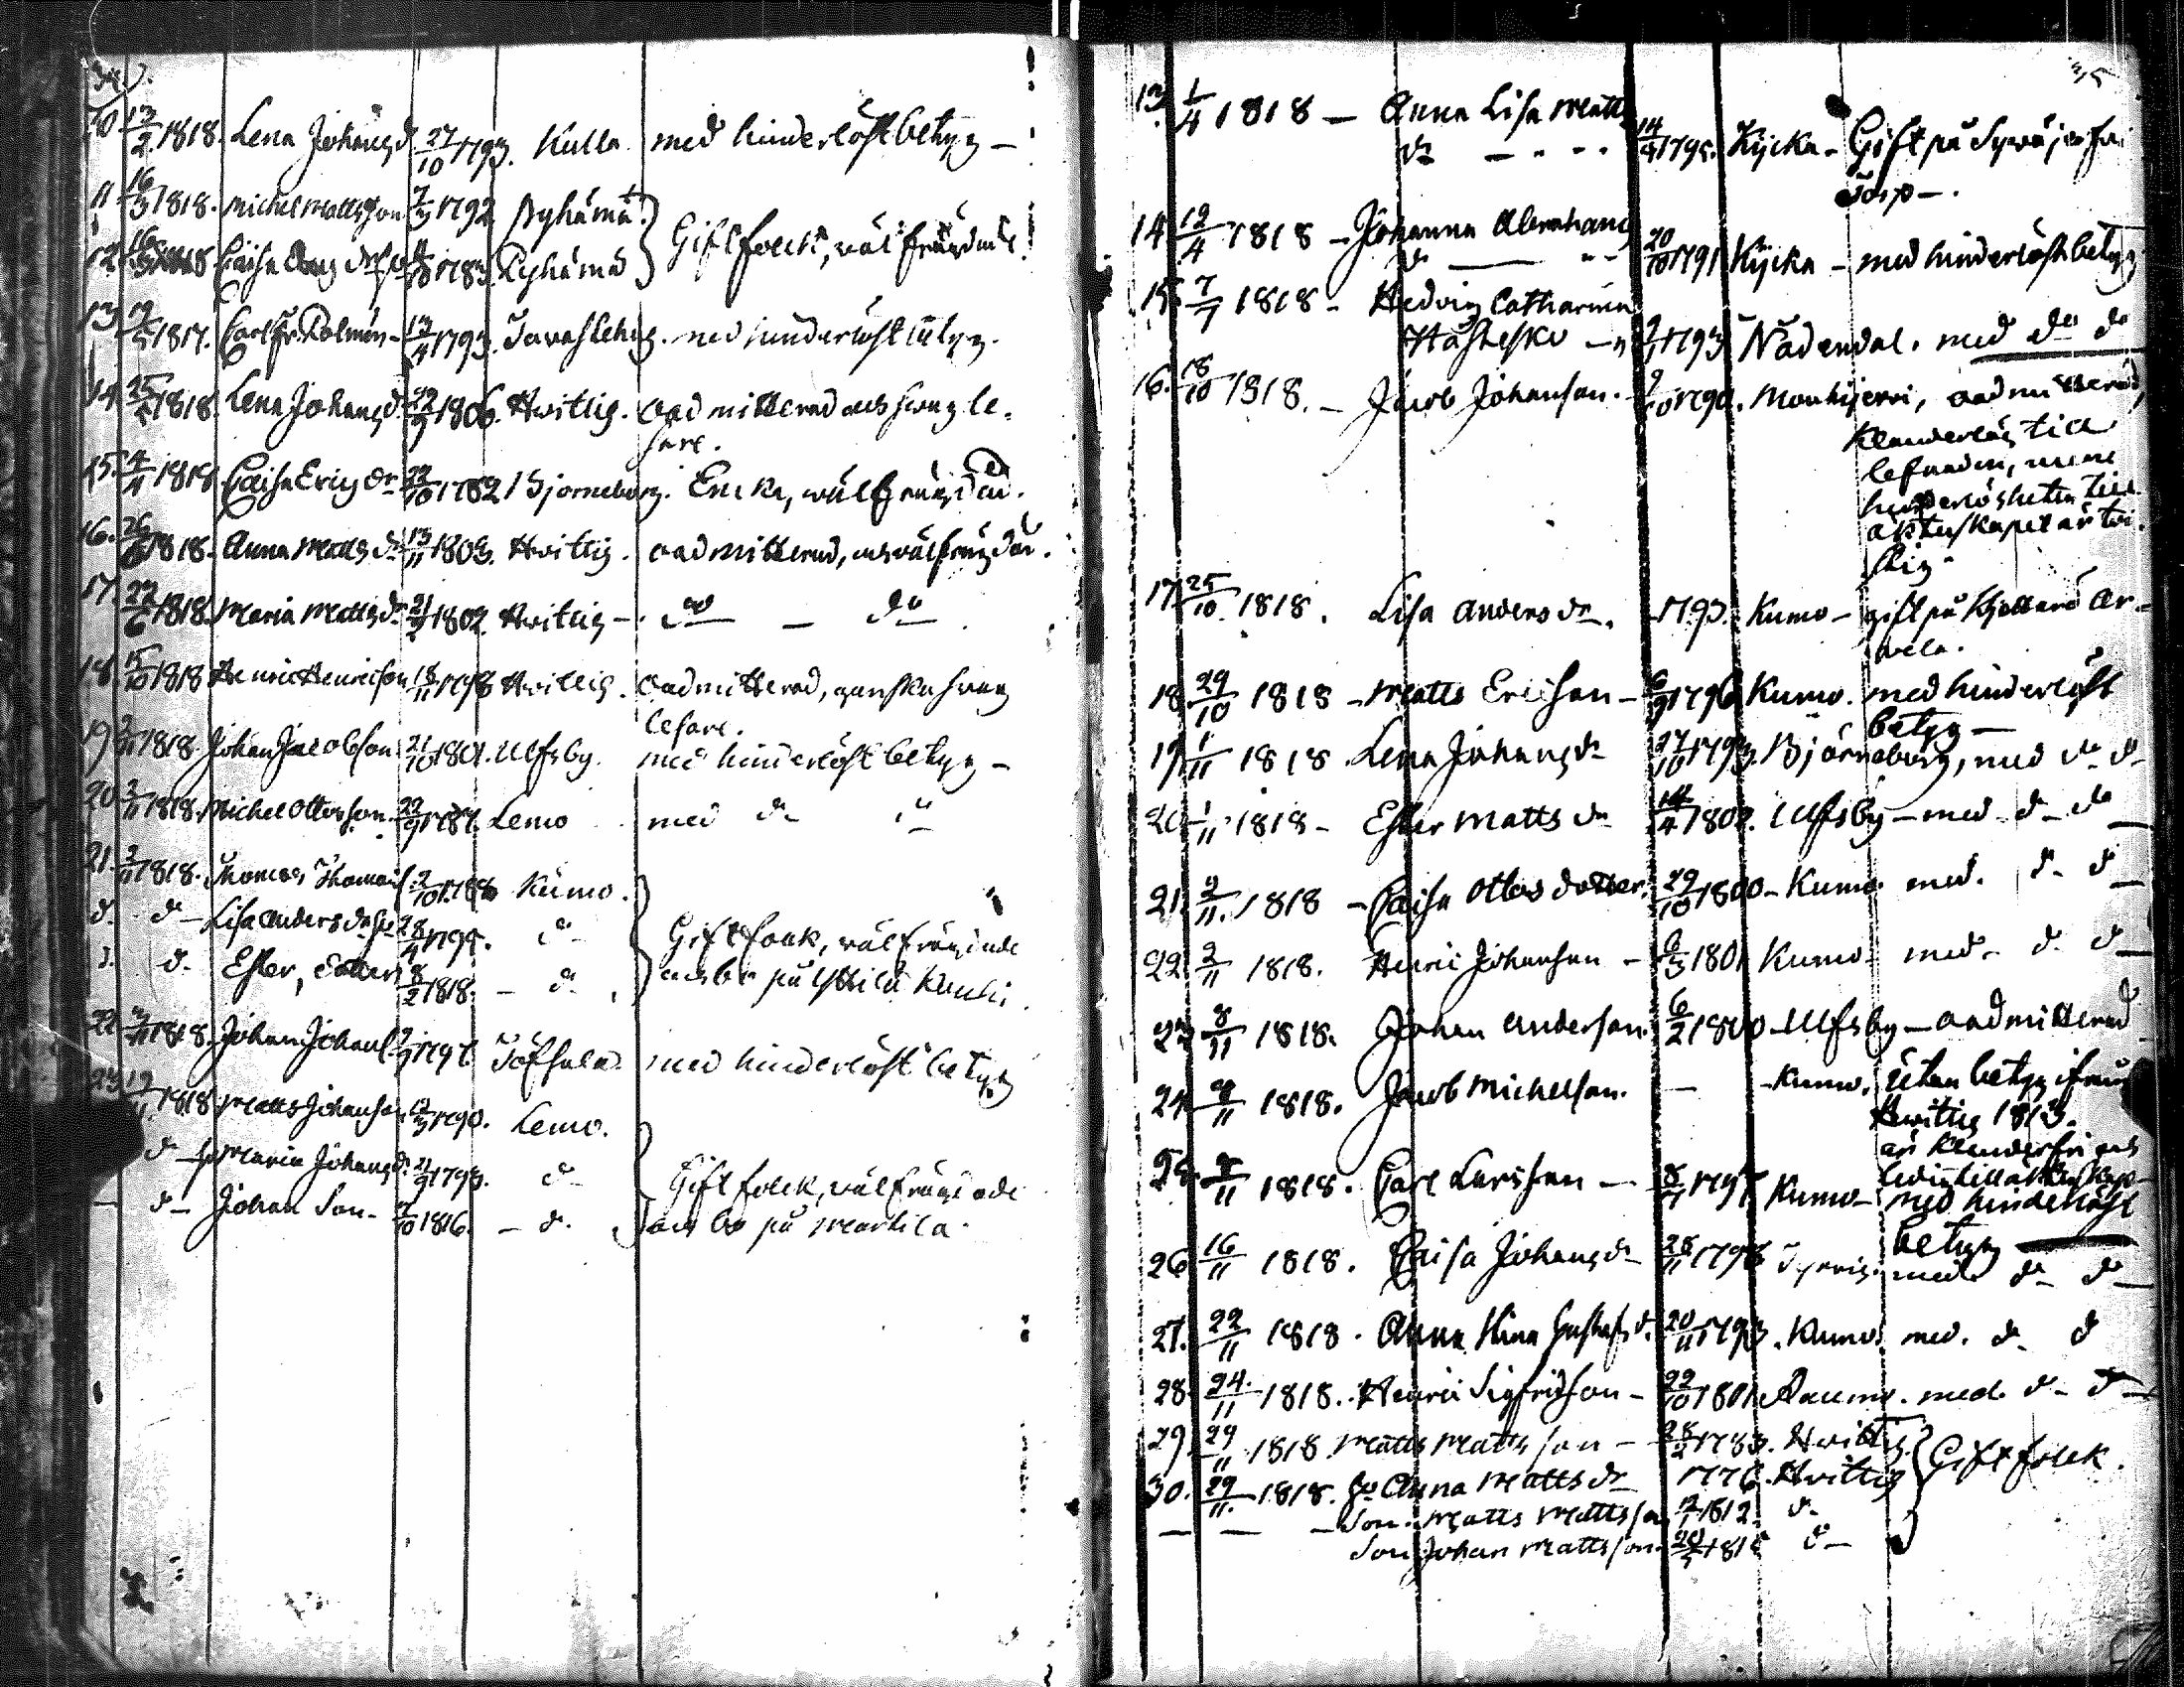 34.
10 13/2 1818. Lena Johansdr 27/10 1793. Kulla med hinderlöst betyg —
11 16/3 1818. Michel Mattsson 7/3 1792 Pyhämä
12 Caisa dr hu 1783. Pyhämä } Giftfolck, väl frägdade
13 1817. Carl Fr. 13/4 1793. Tavastehus. med hinderlöst betyg.
14 25/ 1818. Lena Johansdr 22/ 1806. Hvittis. oadmitterad och svag le-
sare.
15. 4/ 1818 Caisa Ericsdr 22/10 1782 Björneborg. Encka, wälfrägdad.
16. 26/6 1818. Anna Mattsdr 13/11 1803. Hvittis. oadmitterad, och välfrägdad.
17. 27/6 1818. Maria Mattsdr 21/ 1802. Hvittis — do — do
18 15/10 1818 Henric Henricson 18/11 1798 Hvittis. Oadmitterad, ganska svag
lesare.
19 2/11 1818. Johan Jacobson 21/10 1801. Ulfsby. med hinderlöst betyg —
20 2/11 1818. Michel Ottosson 22/9 1787. Lemo med do do
21. 2/11 1818. Thomas Thomass. 2/10 1788 Kumo.
do do — Lisa Andersdr hu 28/4 1795. do
do Ester, dotter 8/2 1818. — do } Giftfolck, väl frägdade
och bo på Yttilä
22. /11 1818. Johan Johans. 179 Töfsala. med hinderlöst betyg
23 12/11 1818 Matts Johanson 12/3 1790. Lemo.
do hu Maria Johansdr 21/ 1793. do
— do — Johan Son — /10 1816. — do } Gift folck, välfrägdade
och bo på Marttila.
35
13. 1/4 1818 — Anna Lisa Matts
dr — 14/4 1795. Kjicka — Gift på
Torp —.
14 12/4 1818 — Johanna Abrahams
dr — 20/10 1791 Kjicka — med hinderlöst betyg
15. 7/7 1818 — Hedvig Catharina
Hästesko — 1793 Nådendal. med do do
16. 18/10 1818. — Jacob Johanson. — /10 1790. Mouhijervi, oadmitterad,
klanderlös till
lefnaden, men
hinderlösheten till
äktenskapet är tvi-
flig.
17. 25/10 1818. Lisa Andersdr. — 1793. Kumo — gift på Ar-
vela.
18 29/10 1818 — Matts Ericson — 6/9 1796 Kumo. med hinderlöst
betyg —
19 1/11 1818. Lena Johansdr 27/10 1793. Björneborg, med do do
20 1/11 1818 — Ester Mattsdr 14/4 1802. Ulfsby — med do do
21. 2/11. 1818 — Caisa Ottosdotter. 29/10 1800 — Kumo. med. do do
22. 2/11 1818. Henric Johanson — /3 1801 Kumo — med — do do
23 8/11 1818. Johan Anderson. 6/2 1800 — Ulfsby — oadmitterad
24 8/11 1818. Jacob Michelson. — — Kumo. Utan betyg ifrån
Hvittis 1813.
är klanderfri och
ledig till äktenskap
25. 8/11 1818. Carl Larsson — 8/ 1797 Kumo — med hinderlöst
betyg —
26 16/11 1818. Caisa Johansdr 28/11 1798 Tyrvis. med do do
27. 22/11 1818. Anna Stina Gustafsdr. 20/11 1793. Kumo. med. do do
28. 24./11 1818. Henric Sigfridson — 22/10 1801 Raumo. med do do
29. 29/11 1818 Matts Mattsson — 28/2 1783. Hvittis
30. 29/11. 1818. hu Anna Mattsdr 1776. Hvittis } Gift folck.
— — — Son. Matts Mattsson 12/1 1812. do
Son Johan Mattsson. 181 do —